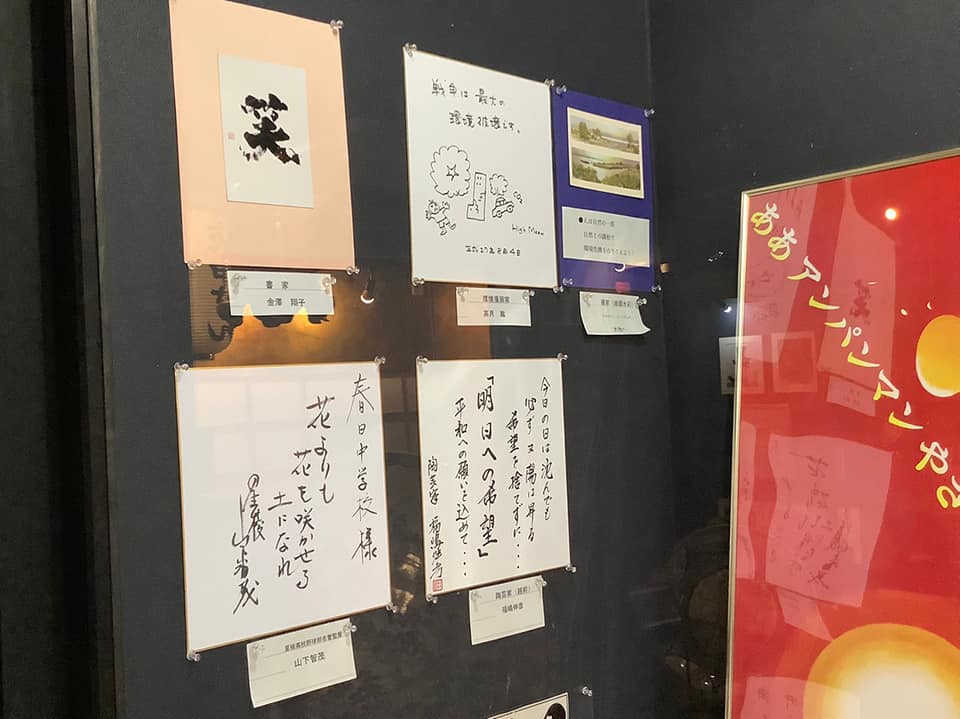 笑
書家
金澤 翔子
戦争は最大の
環境破壊です。
High Moon
環境漫画家
高月 紘
●人は自然の一部
春日中学校様
花よりも
花を咲かせる
土になれ
山下智茂
星稜高校野球部名誉監督
山下智茂
今日の日は沈んでも
必ず又陽は昇る
希望を捨てずに・・・
「明日への希望」
平和への願いを込めて・・・
陶芸家
陶芸家(越前)
ああアンパンマンやさ